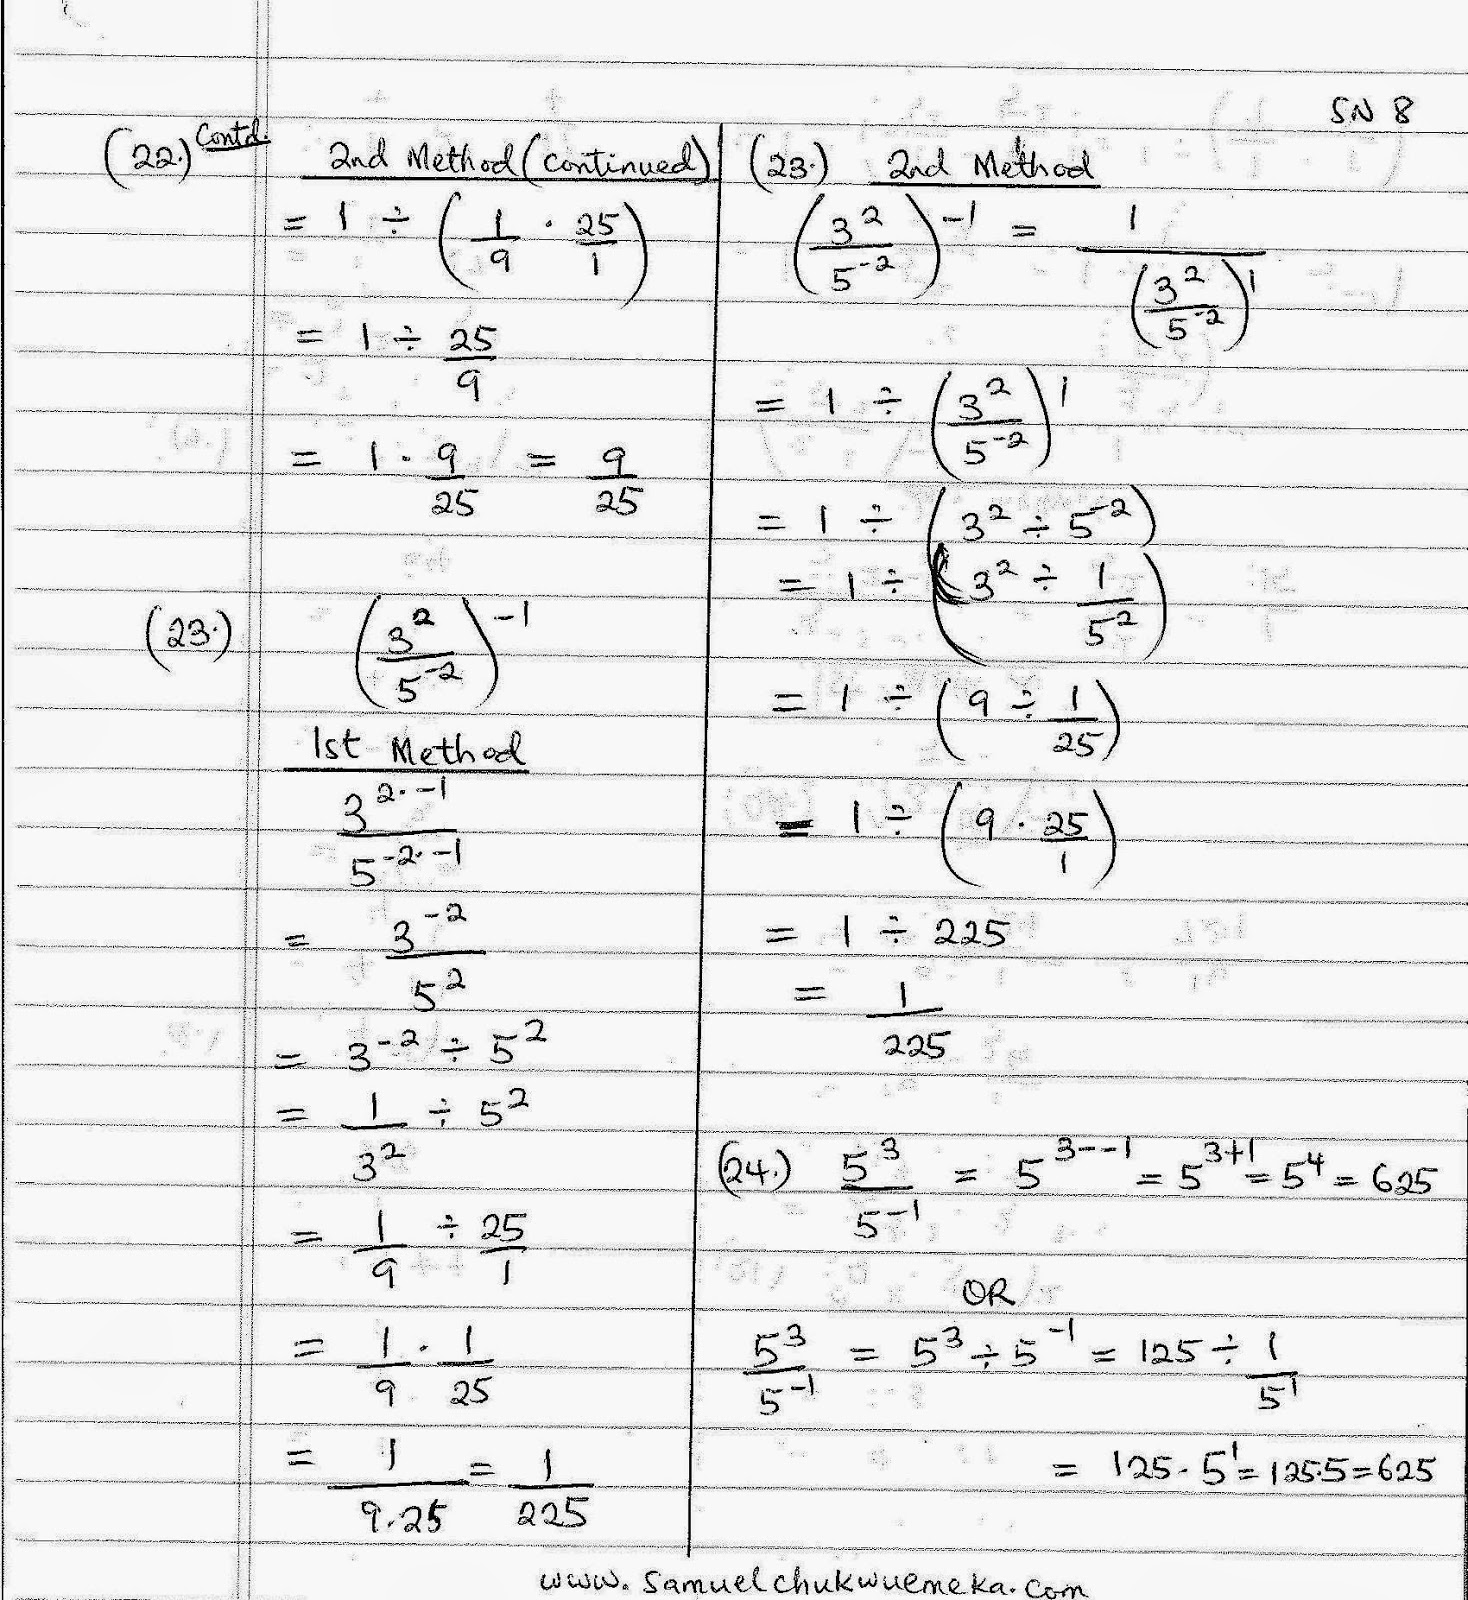 SN 8
(22.) Contd.
2nd Method (continued)
= 1 ÷ (1/9 · 25/1)
= 1 ÷ 25/9
= 1 · 9/25 = 9/25
(23.) (3^2/5^-2)^-1
1st Method
3^(2·-1)/5^(-2·-1)
= 3^-2/5^2
= 3^-2 ÷ 5^2
= 1/3^2 ÷ 5^2
= 1/9 ÷ 25/1
= 1/9 · 1/25
= 1/(9·25) = 1/225
(23.) 2nd Method
(3^2/5^-2)^-1 = 1/(3^2/5^-2)^1
= 1 ÷ (3^2/5^-2)^1
= 1 ÷ (3^2 ÷ 5^-2)
= 1 ÷ (3^2 ÷ 1/5^2)
= 1 ÷ (9 ÷ 1/25)
= 1 ÷ (9 · 25/1)
= 1 ÷ 225
= 1/225
(24.) 5^3/5^-1 = 5^(3--1) = 5^(3+1) = 5^4 = 625
OR
5^3/5^-1 = 5^3 ÷ 5^-1 = 125 ÷ 1/5^1
= 125 · 5^1 = 125·5 = 625
www.samuelchukwuemeka.com